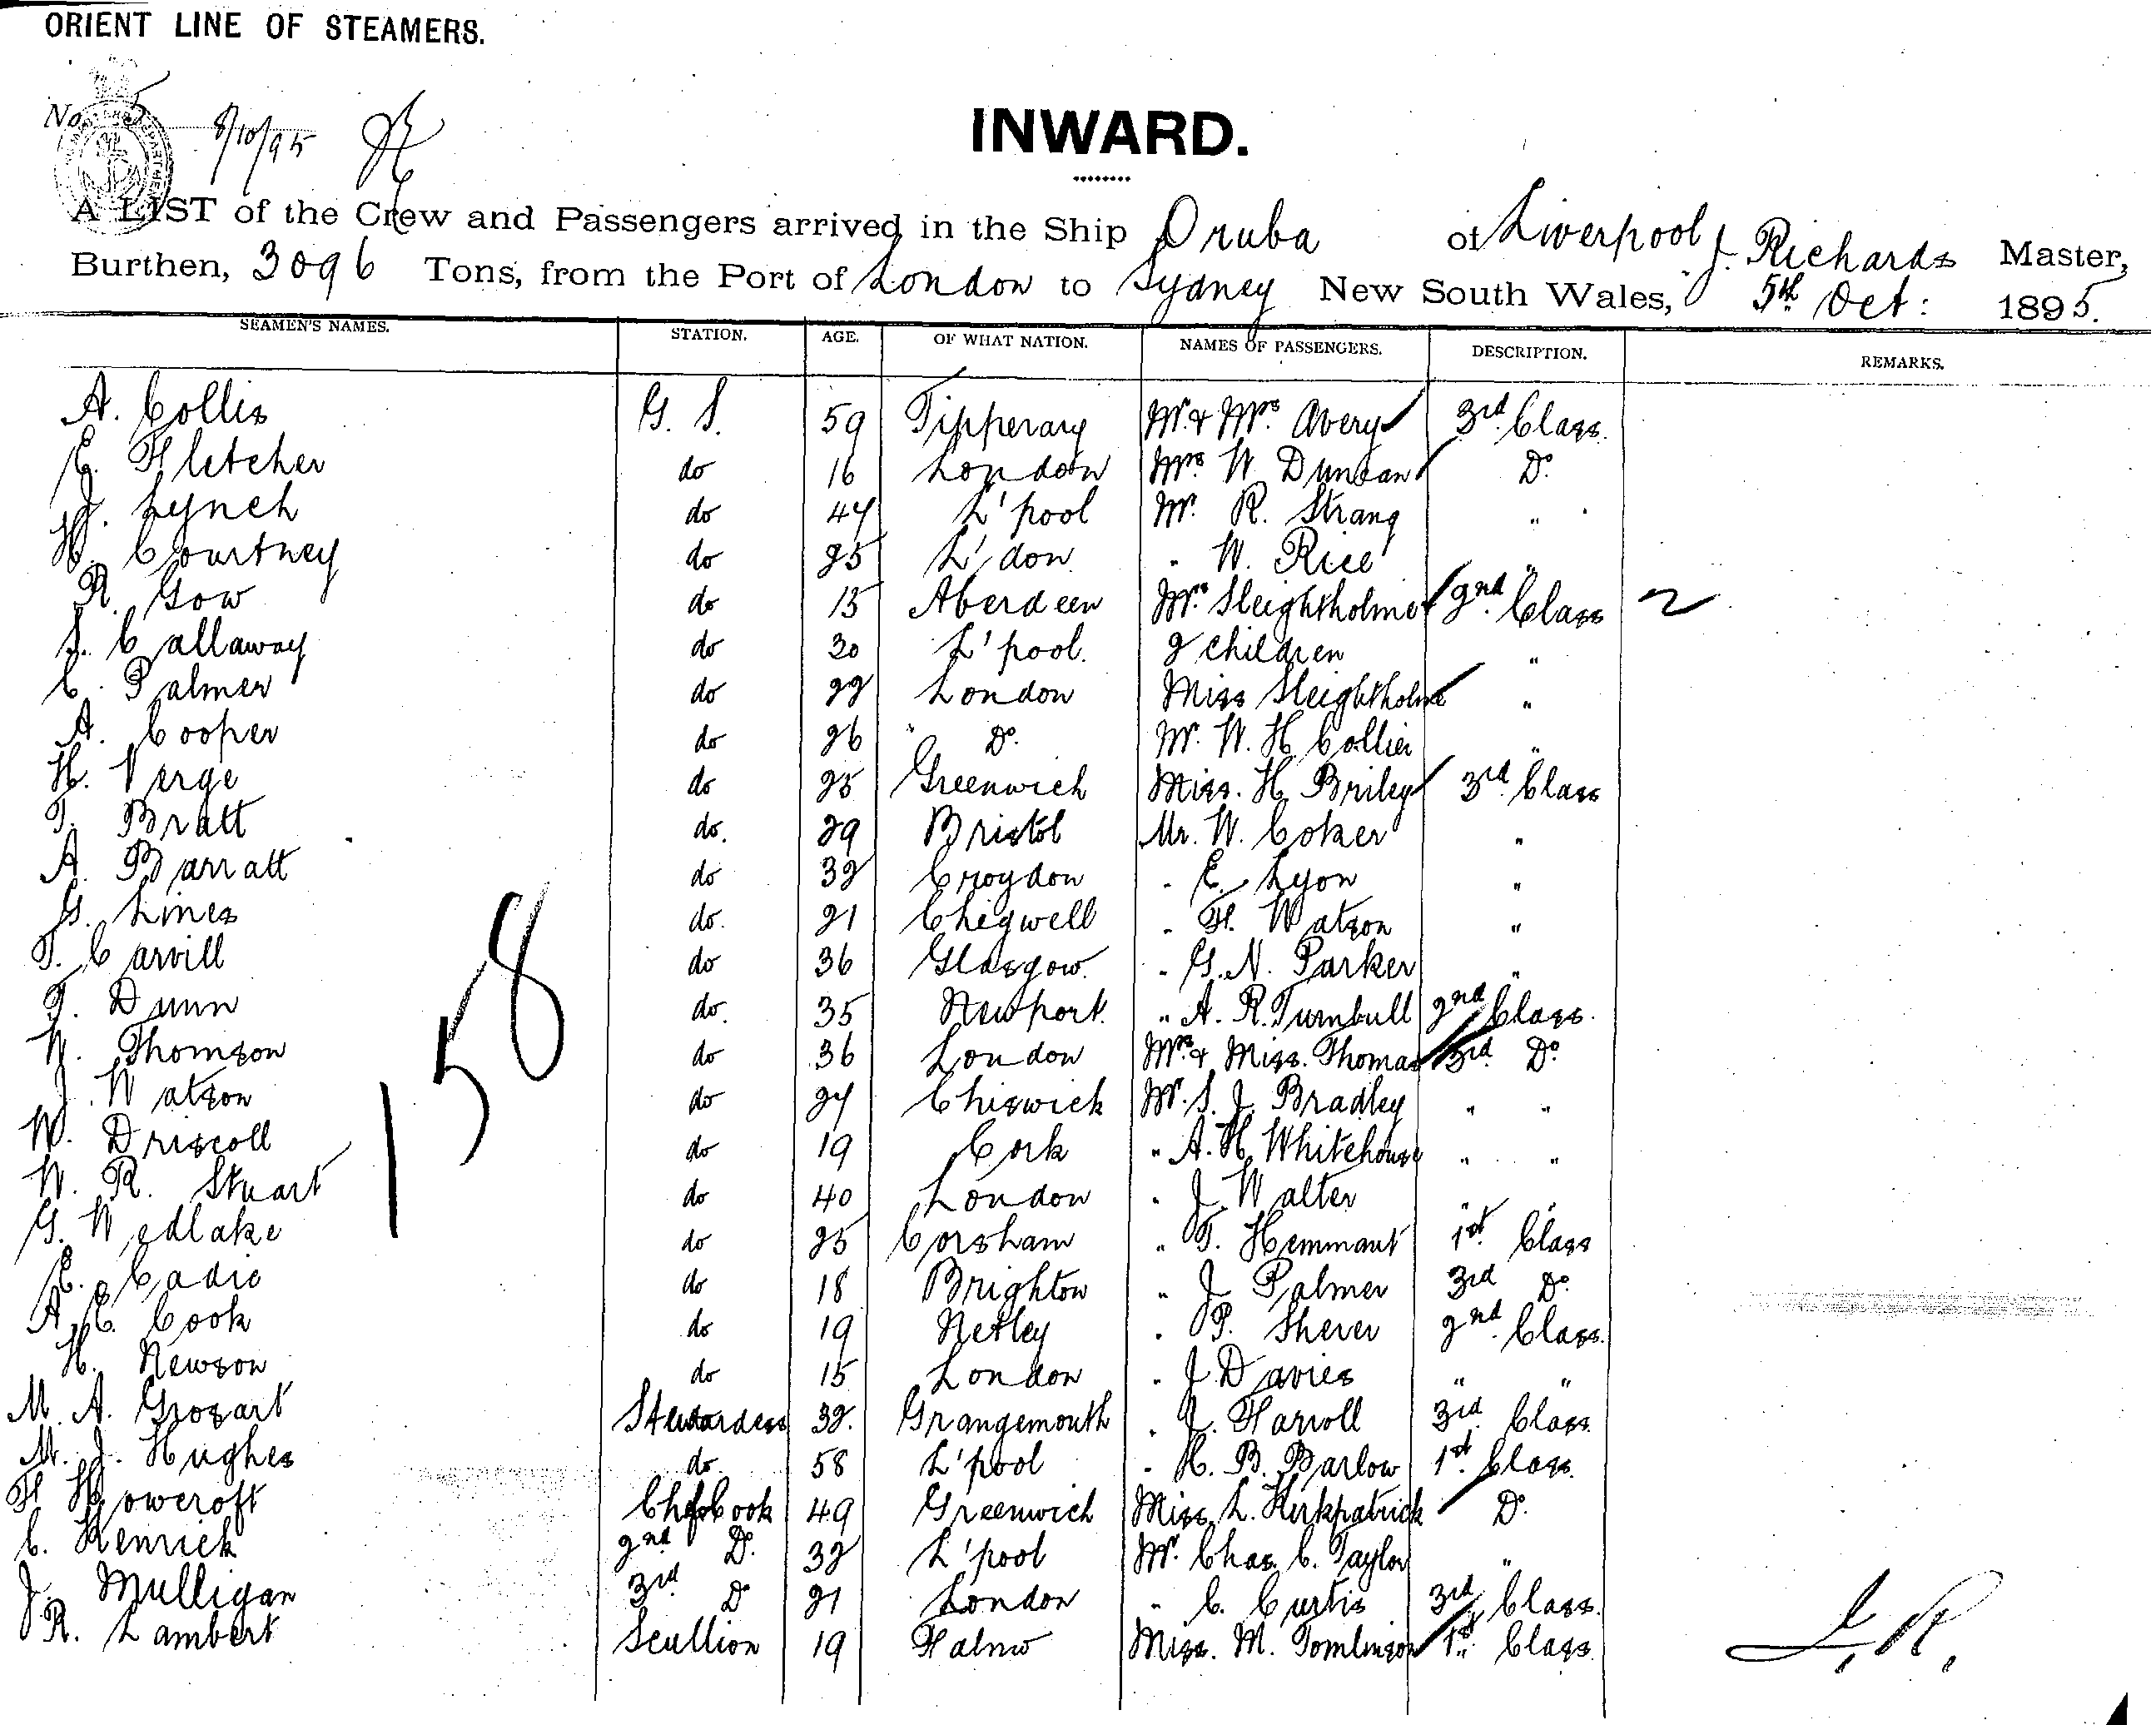 ORIENT LINE OF STEAMERS.
No. 5 8/10/95
INWARD.
A LIST of the Crew and Passengers arrived in the Ship Oruba of Liverpool J. Richards Master,
Burthen, 3096 Tons, from the Port of London to Sydney New South Wales, 5th Oct: 1895.
SEAMEN'S NAMES. STATION. AGE. OF WHAT NATION. NAMES OF PASSENGERS. DESCRIPTION. REMARKS.
A. Collis G. S. 59 Tipperary Mr. & Mrs. Avery 3rd. Class.
E. Fletcher do 16 London Mrs W Duncan Do.
J. Lynch do 44 L'pool Mr. R. Strang "
H. Courtney do 25 L'don " W. Rice "
R. Gow do 15 Aberdeen Mrs Sleightholme 2nd. Class
S. Callaway do 30 L'pool. 2 Children "
C. Palmer do 22 London Miss Sleightholme "
A. Cooper do 26 " Do. Mr. W. H Collier "
H. Verge do 25 Greenwich Miss. H. Briley 3rd. Class
T. Bratt do. 29 Bristol Mr. W. Coker "
A. Barratt do 32 Croydon " E. Lyon "
G. Lines do. 21 Chigwell " F. Watson "
T. Carvill do 36 Glasgow. " G. N. Parker "
T. Dunn do. 35 Newport. " A. R. Turnbull 2nd Class.
N. Thomson do 36 London Mrs. & Miss. Thomas 3rd. Do.
J. Watson do 24 Chiswick Mr. S. J. Bradley " "
W. Driscoll do 19 Cork " A. H. Whitehouse " "
W. R. Stuart do 40 London " J. Walter " "
G. Wedlake do 25 Corsham " T. Hemmant 1st. Class
E. Cadie do 18 Brighton " J Palmer 3rd Do.
A. E. Cook do 19 Netley " P. Sherer 2nd. Class.
H. Newson do 15 London " J. Davies " "
M. A. Grozart Stewardess 32. Grangemouth " J. Farroll 3rd. Class.
M. J. Hughes do. 58 L'pool " H. B. Barlow 1st. Class.
F Howcroft Chf Cook 49 Greenwich Miss. L. Kirkpatrick Do.
C. Kenrick 2nd Do. 32 L'pool Mr. Chas. C. Taylor "
J. Mulligan 3rd Do 21 London " C. Curtis 3rd Class.
R. Lambert Scullion 19 Falmo Miss. M. Tomlinson 1st. Class.
158
J. R.